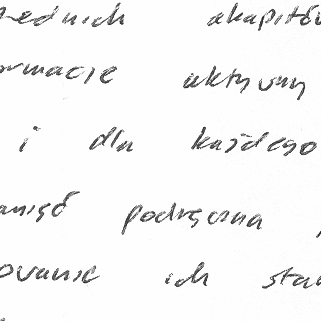 ednich akapitów
ormacje aktywny
i dla każdego
amięć podręczna
owanie ich sta